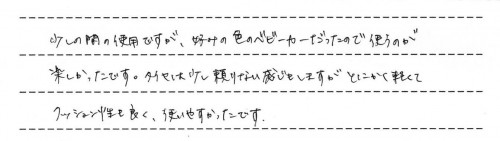 少しの間の使用ですが、好みの色のベビーカーだったので使うのが
楽しかったです。タイヤは少し頼りない感じもしますがとにかく軽くて
クッション性も良く、使いやすかったです.